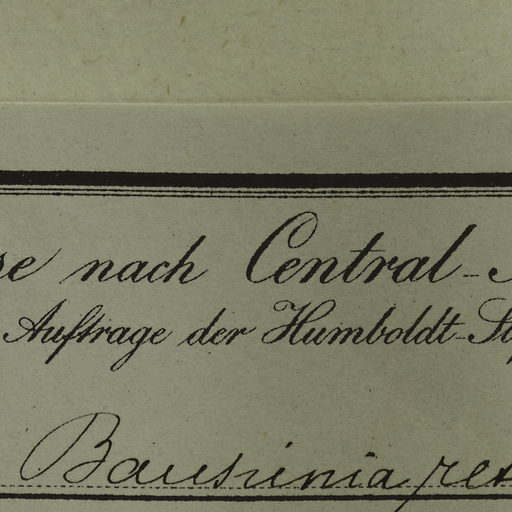 se nach Central-
Auftrage der Humboldt-St
Bauhinia ret